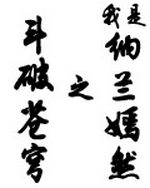 斗破苍穹
之
我是
纳兰嫣然